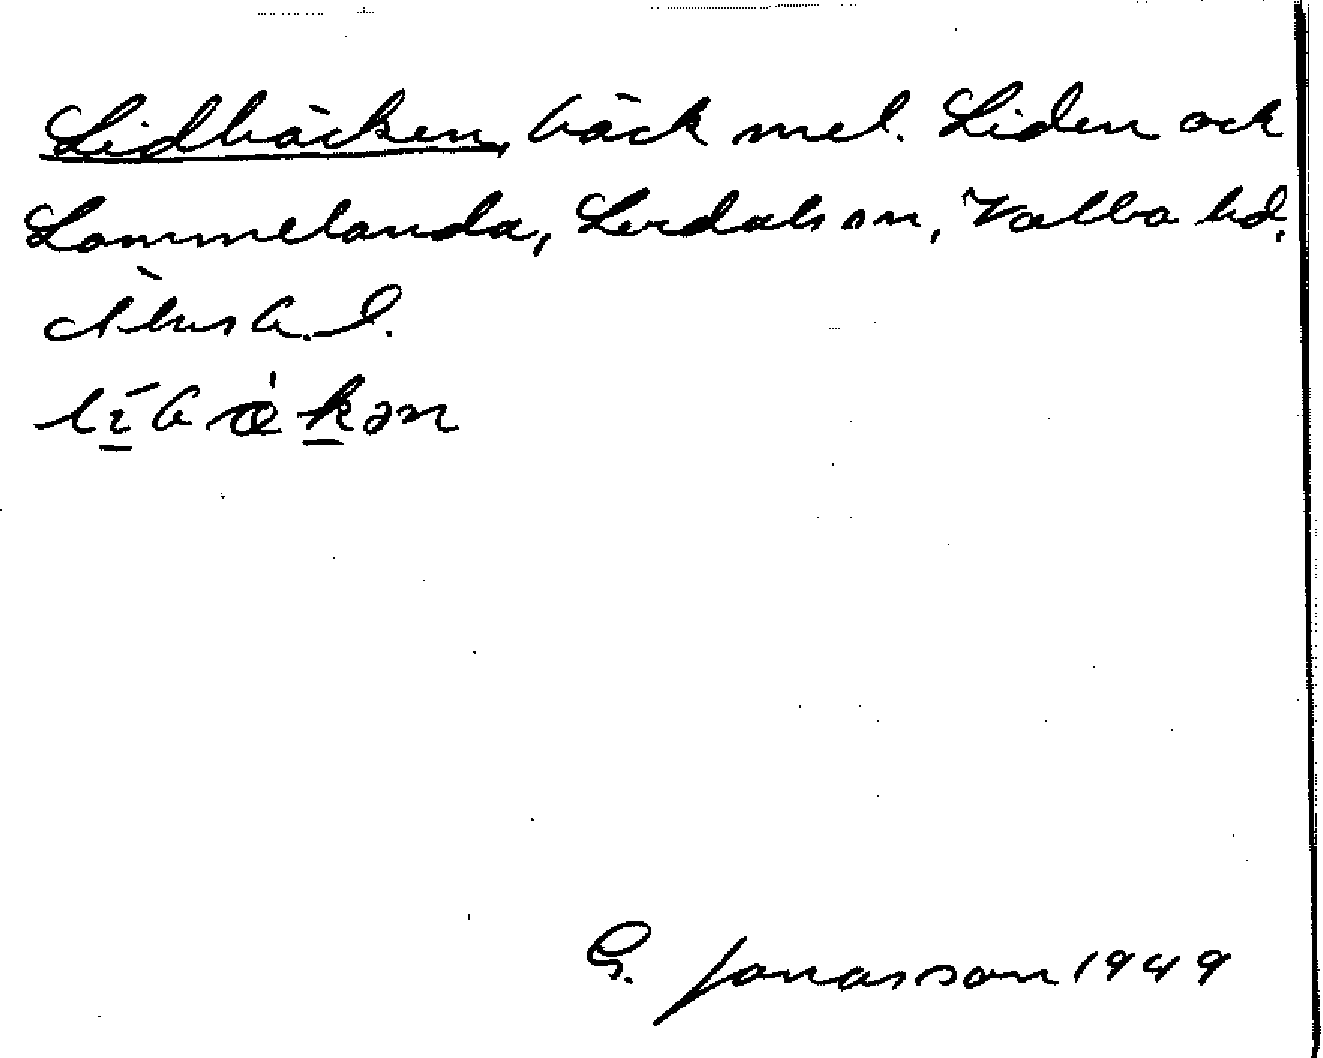 Lidbäcken, bäck mel. Liden och
Lommelanda, Lerdals sn, Valbo hd.
Älvsb. l.
G. Jonasson 1949